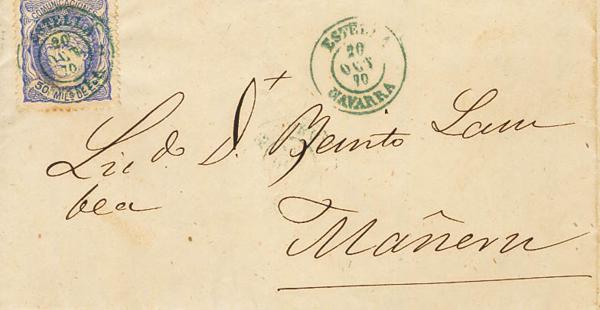 COMUNICACIONES
ESTELLA
20
OCT
70
50 MILS DE ESO
ESTELLA
20
OCT
70
NAVARRA
+
Licdo D. Benito Lam
bea
Mañeru